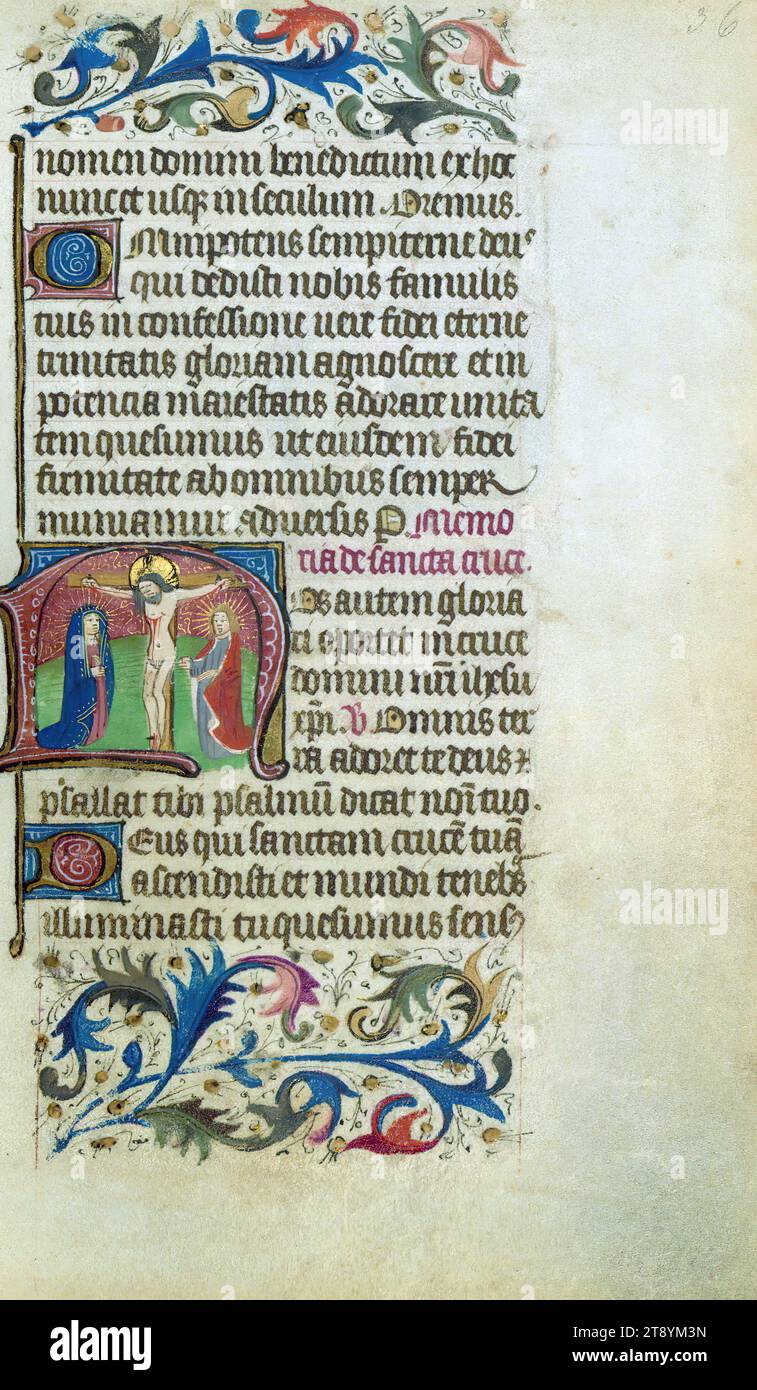 36
nomen domini benedictum ex hoc
nunc et usq in seculum. Oremus.
Omnipotens sempiterne deus
qui dedisti nobis famulis
tuis in confessione uere fidei eterne
trinitatis gloriam agnoscere et in
potencia maiestatis adorare unita
tem quesumus ut eiusdem fidei
firmitate ab omnibus semper
muniamur aduersis P. Memo
ria de sancta cruce.
Nos autem gloria
ri oportet in cruce
domini nri ihesu
xpi. V Omnis ter
ra adoret te deus et
psallat tibi psalmū dicat nom̄ tuo.
Deus qui sanctam crucē tuā
ascendisti et mundi tenebs
illuminasti tu quesumus sens
alamy
alamy
alamy
alamy
Image ID: 2T8YM3N
www.alamy.com